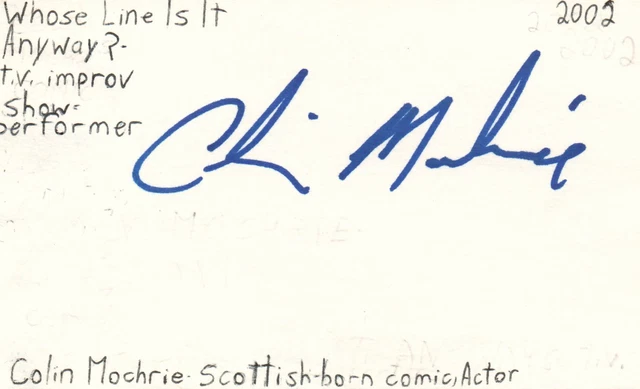 Whose Line Is It
Anyway?-
t.v. improv
show-
performer
2002
Colin Mochrie
Colin Mochrie-Scottish-born comic, Actor